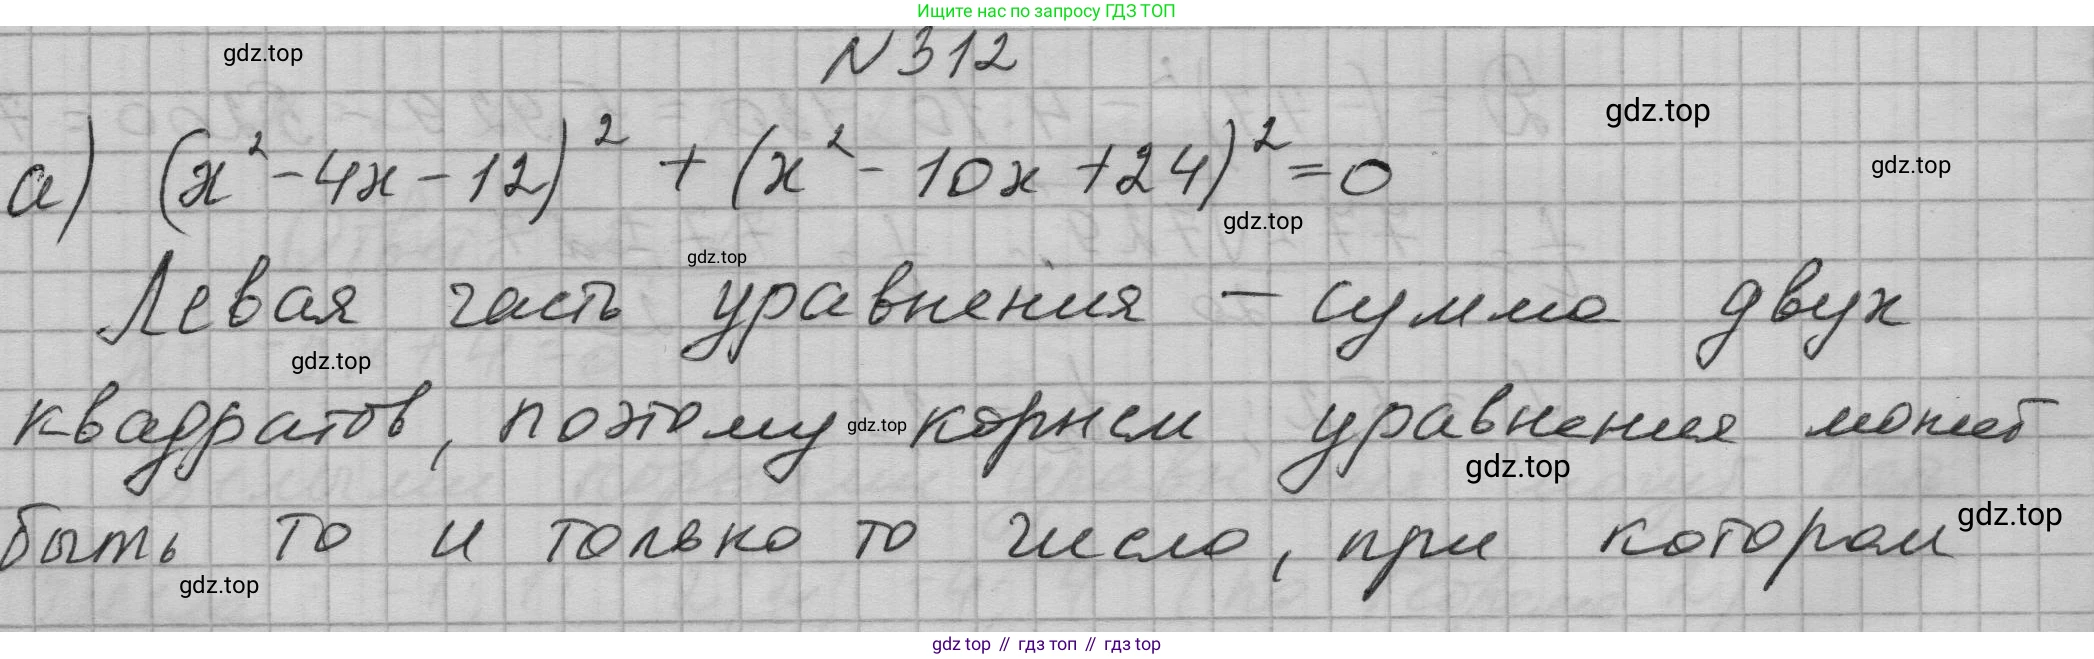 Ищите нас по запросу ГДЗ ТОП
gdz.top
N 312
gdz.top
а) (x² - 4x - 12)² + (x² - 10x + 24)² = 0
gdz.top
gdz.top
gdz.top
Левая часть уравнения — сумма двух
gdz.top
квадратов, поэтому корнем уравнения может
gdz.top
gdz.top
быть то и только то число, при котором
gdz.top
gdz.top
gdz top // гдз топ // gdz top